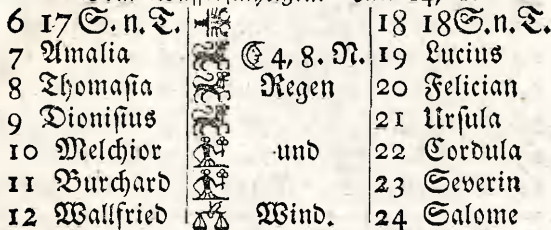 6 17 S. n. T. 18 18 S. n. T.
7 Amalia ☾ 4, 8. N. 19 Lucius
8 Thomasia Regen 20 Felician
9 Dionisius 21 Ursula
10 Melchior und 22 Cordula
11 Burchard 23 Severin
12 Wallfried Wind. 24 Salome